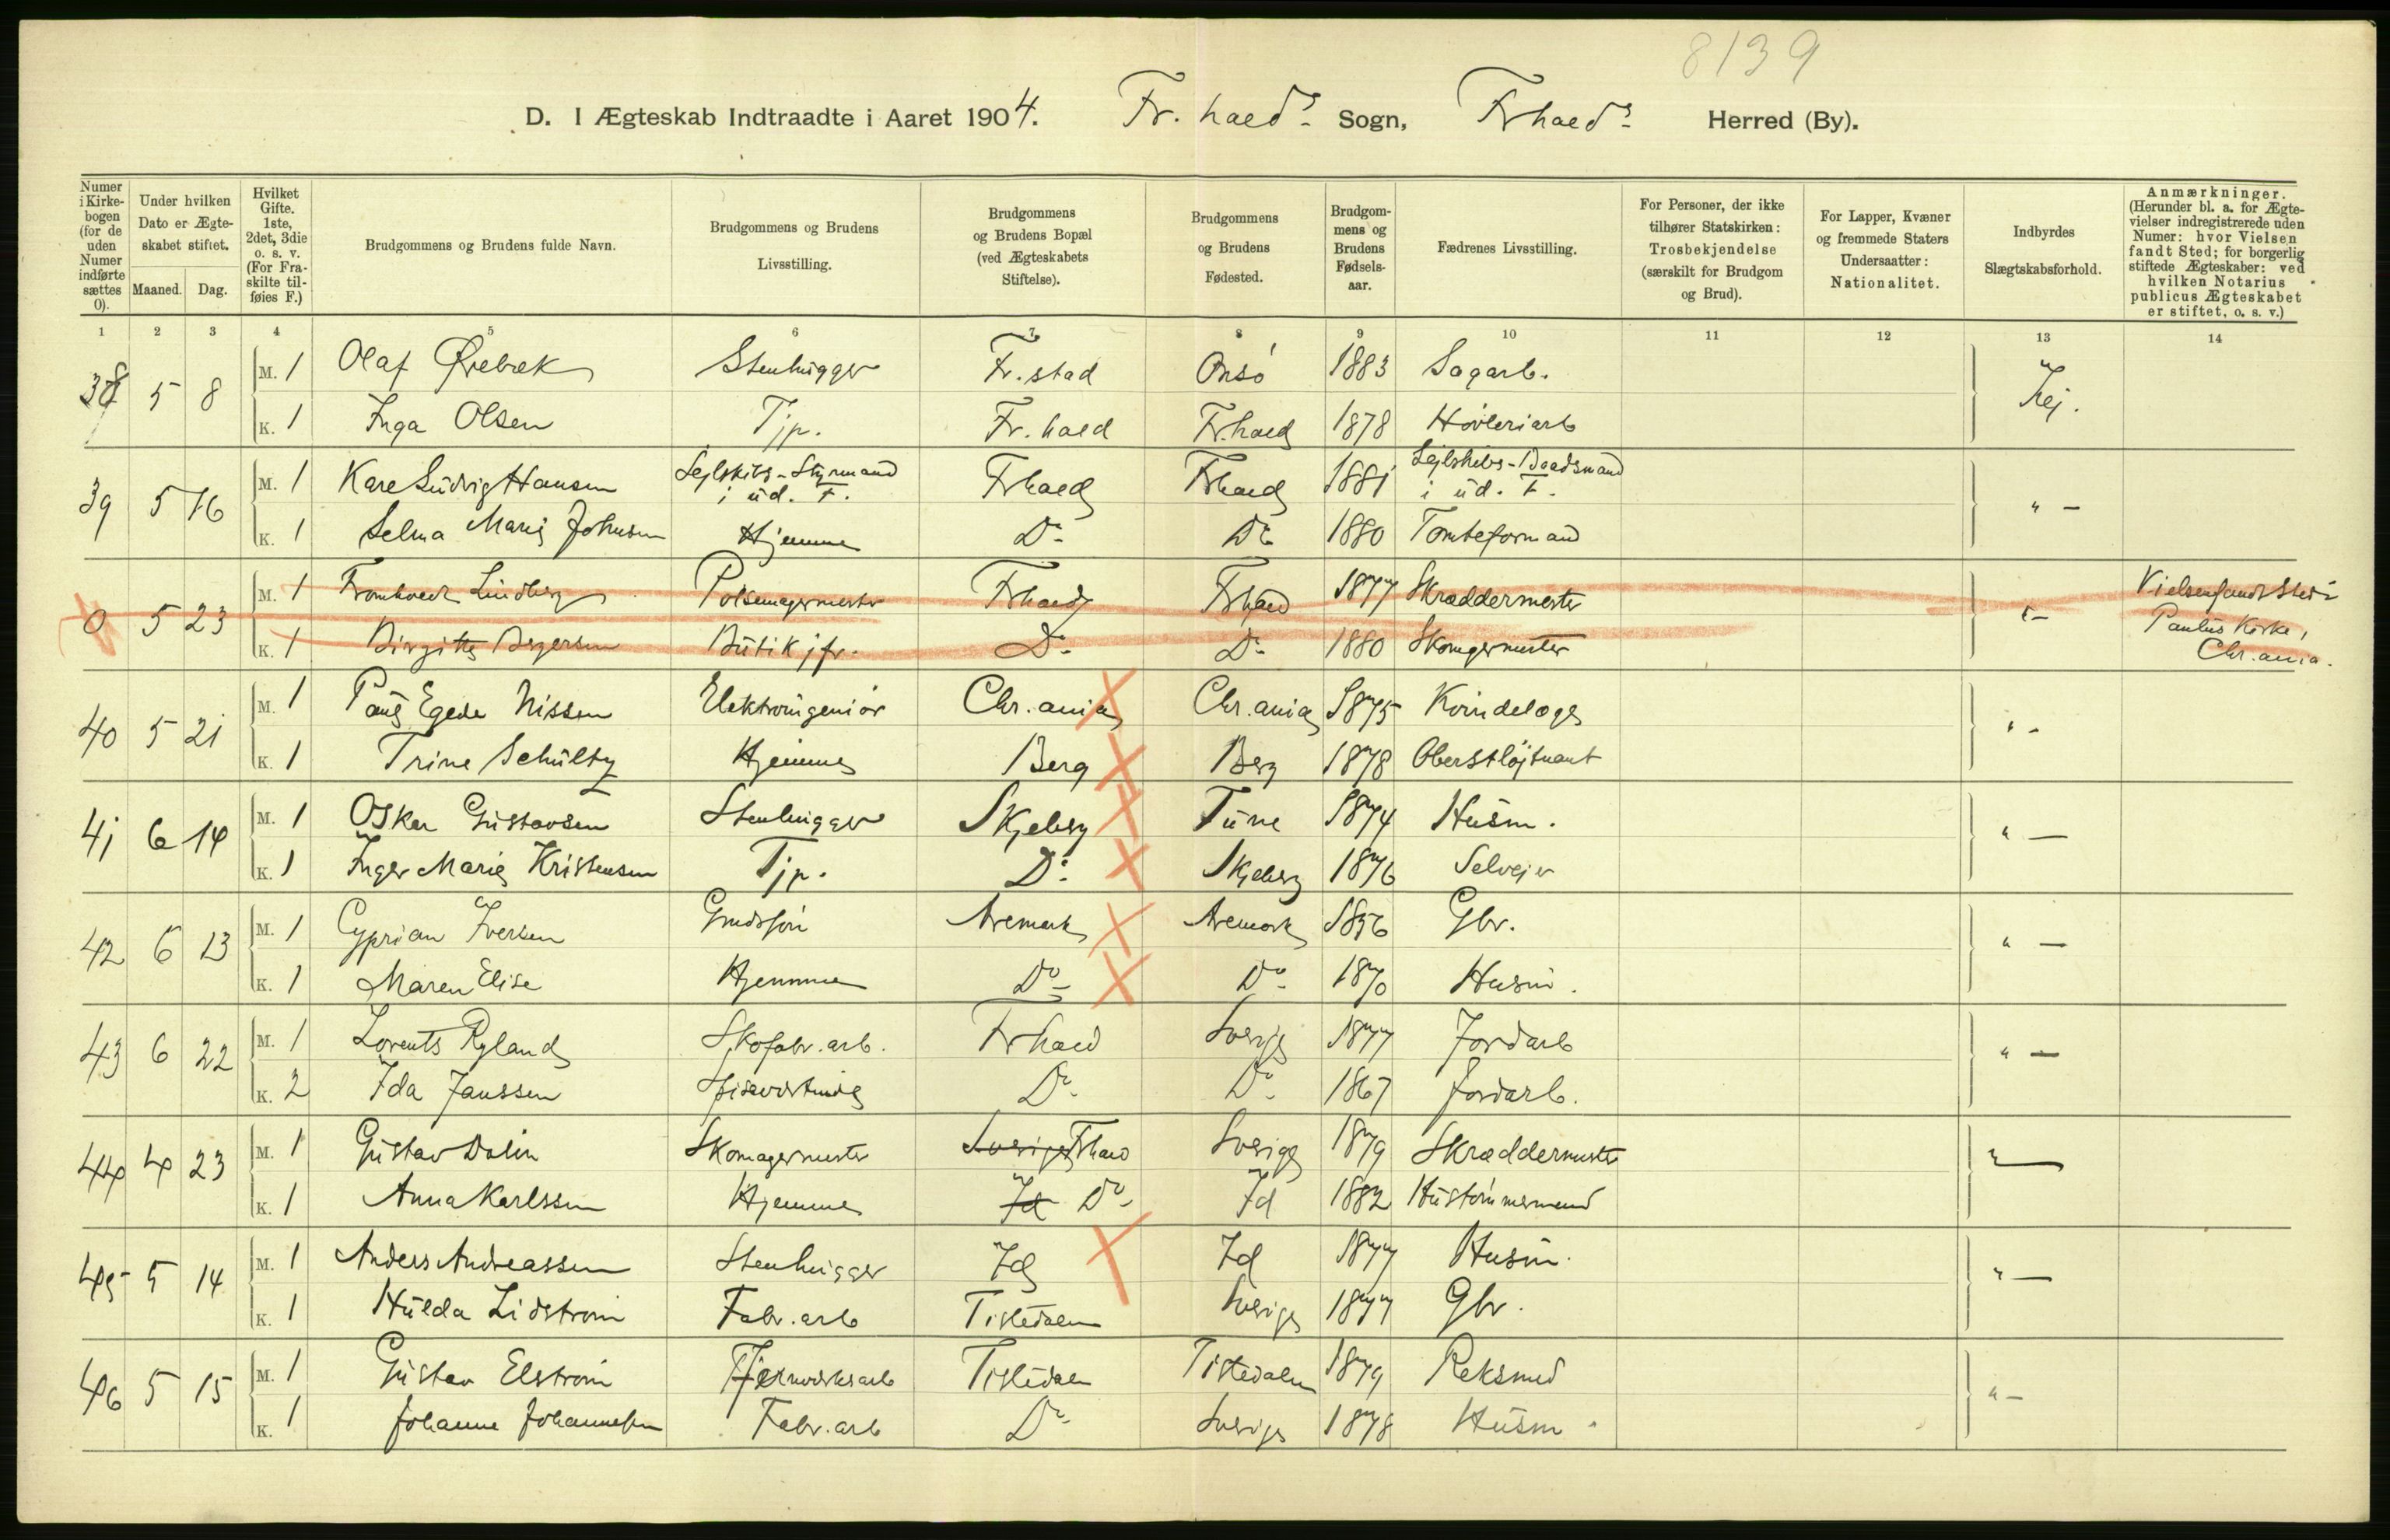 8139
D. I Ægteskab Indtraadte i Aaret 1904. Fr.hald's Sogn, Frhald's Herred (By).
Numer i Kirkebogen (for de uden Numer indførte sættes 0).
Under hvilken Dato er Ægteskabet stiftet.
Maaned. Dag.
Hvilket Gifte. 1ste, 2det, 3die o. s. v. (For Fraskilte tilføies F.)
Brudgommens og Brudens fulde Navn.
Brudgommens og Brudens Livsstilling.
Brudgommens og Brudens Bopæl (ved Ægteskabets Stiftelse).
Brudgommens og Brudens Fødested.
Brudgommens og Brudens Fødselsaar.
Fædrenes Livsstilling.
For Personer, der ikke tilhører Statskirken: Trosbekjendelse (særskilt for Brudgom og Brud).
For Lapper, Kvæner og fremmede Staters Undersaatter: Nationalitet.
Indbyrdes Slægtskabsforhold.
Anmærkninger. (Herunder bl. a. for Ægtevielser indregistrerede uden Numer: hvor Vielsen fandt Sted; for borgerlig stiftede Ægteskaber: ved hvilken Notarius publicus Ægteskabet er stiftet, o. s. v.)
1 2 3 4 5 6 7 8 9 10 11 12 13 14
38 5 8 M. 1 Olaf Stenhugger Fr.stad Onsö 1883 Sagarb. Nej.
K. 1 Inga Olsen Tjp. Fr.hald Fr.hald 1878 Høvleriarb
39 5 16 M. 1 Kare Ludvig Hansen Sejlskibs-Styrmand i ud. F. Frhald Frhald 1881 Sejlskibs-Baadsmand i ud. F. " -
K. 1 Selma Marie Johnsen Hjemme Do 1880 Tomteformand
0 5 23 M. 1 Lindberg Pølsemagermester Frhald Frhald 1877 Skræddermester " - Vielsen fandt Sted i
K. 1 Birgitte Butikjfr. Do Do 1880 Skomagermester Paulus Kirke, Chr.ania.
40 5 21 M. 1 Paul Egede Nissen Elektroingeniør Chr.ania Chr.ania 1875 Kvindelæge " -
K. 1 Trine Schultz Hjemme Berg Berg 1878 Oberstløjtnant
41 6 14 M. 1 Oskar Gustavsen Stenhugger Skjeberg Tune 1874 Husm. " -
K. 1 Inger Marie Kristensen Tjp. Do Skjeberg 1876 Selvejer
42 6 13 M. 1 Cyprian Iversen Aremark Aremark 1856 Gbr. " -
K. 1 Maren Elise Hjemme Do Do 1870 Husm.
43 6 22 M. 1 Lorents Ryland Skofabr.arb. Frhald Sverige 1877 Jordarb " -
K. 2 Ida Janssen Spisevertinde Do Do 1867 Jordarb.
44 4 23 M. 1 Gustav Dalin Skomagermester Sverige Frhald Sverige 1879 Skræddermester " -
K. 1 Anna Karlsson Hjemme Id Do Id 1882 Hustømmermand
45 5 14 M. 1 Anders Andreassen Stenhugger Id Id 1877 Husm. " -
K. 1 Hulda Lidström Fabr.arb Tistedalen Sverige 1877 Gbr.
46 5 15 M. 1 Gustav Elström Jernverksarb Tistedalen Tistedalen 1879 " -
K. 1 Johanne Johannesen Fabr.arb Do Sverige 1878 Husm.